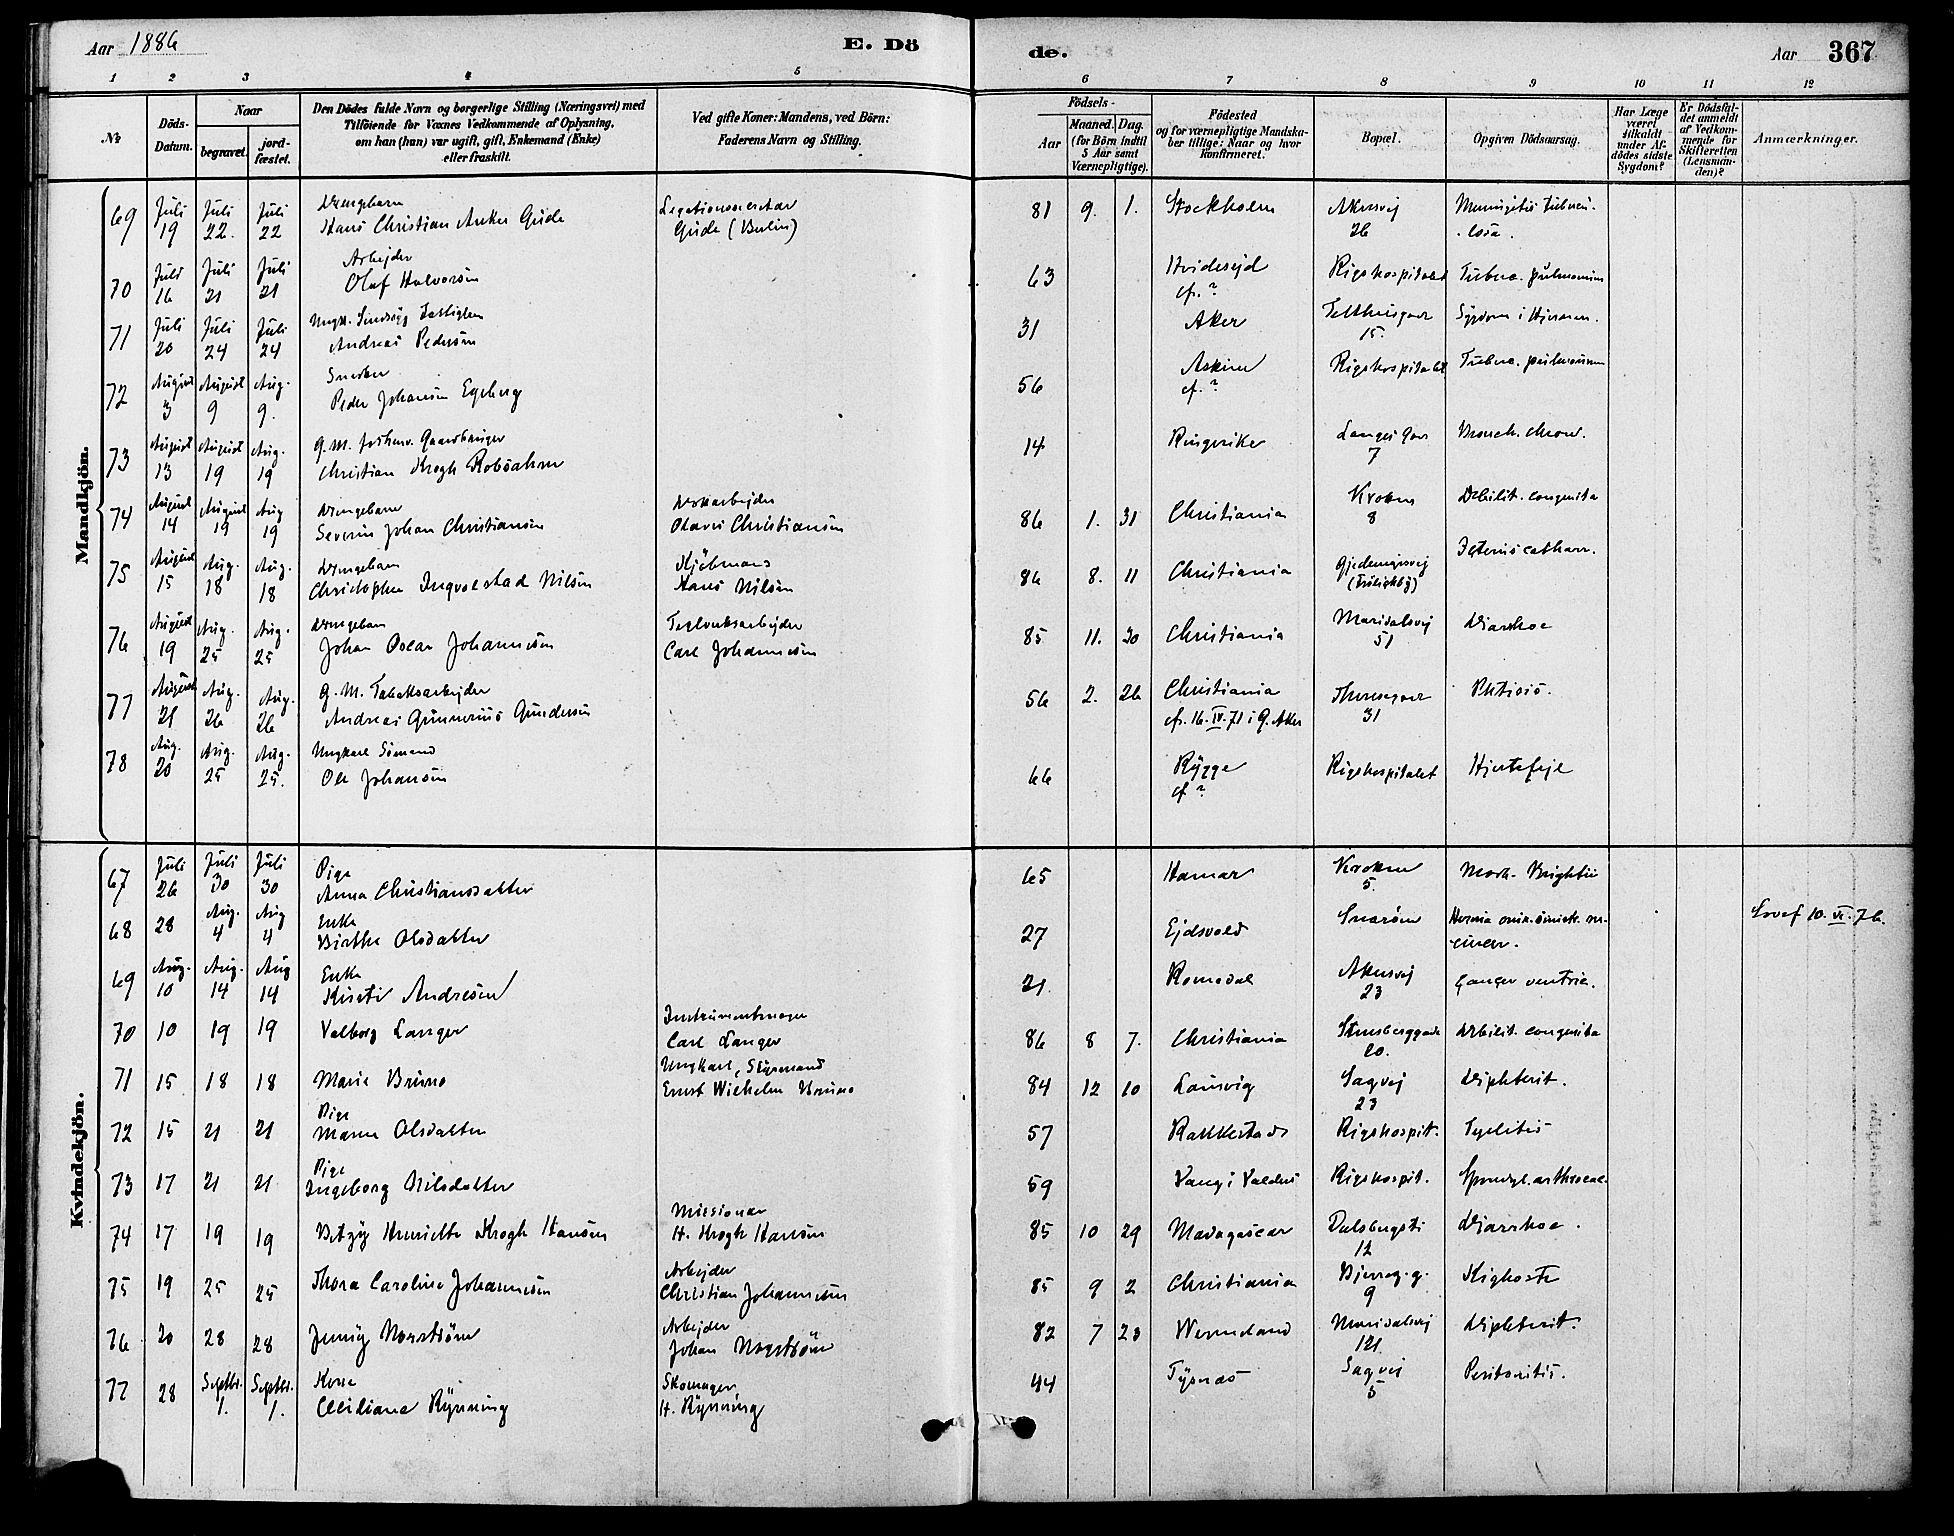 Aar 1886 E. Dö
1 2 3 4 5
№
Döds-Datum.
Naar
begravet.
jordfæstet.
Den Dödes fulde Navn og borgerlige Stilling (Næringsvei) med
Tilföiende for Voxnes Vedkommende af Oplysning,
om han (hun) var ugift, gift, Enkemand (Enke)
eller fraskilt.
Ved gifte Koner: Mandens, ved Börn:
Faderens Navn og Stilling.
de. Aar 367
6 7 8 9 10 11 12
Födsels-
Aar
Maaned. Dag.
(for Börn indtil
5 Aar samt
Værnepligtige).
Födested
og for værnepligtige Mandska-
ber tillige: Naar og hvor
Konfirmeret.
Bopæl.
Opgiven Dödsaarsag.
Har Læge
været
tilkaldt
under Af-
dödes sidste
Sygdom?
Er Dödsfal-
det anmeldt
af Vedkom-
mende for
Skifteretten
(Lensman-
den)?
Anmærkninger.
Mandkjön.
69 Juli 19 Juli 22. Juli 22 Drengebarn Legationssecretær
Hans Christian Anker Gude Gude (Berlin) 81 9. 1. Stockholm Akersvej 26 Meningitis tubercu-
losa.
70 Juli 16 Juli 21 Juli 21 Arbejder
Olaf Halvorsen 63 Hvidesejd cf. ? Rigshospitalet Tuberc. pulmonum
71 Juli 20 Juli 24 Juli 24 Ungk. Sindssyg Fattiglem
Andreas Pedersen 31 Aker 15. Sygdom i Hjernen.
72 August 3 August 9 Aug. 9. Snedker
Peder Johansen Egeberg 56 Askim cf. ? Rigshospitalet Tuberc. pulmonum
73 August 13 August 19 Aug. 19 G. M.
Christian Krogh Robsahm 14 Ringerike Langes Gad 7 Bronch. chron.
74 August 14 August 19 Aug 19 Drengebarn
Severin Johan Christiansen Olaves Christiansen 86 1. 31 Christiania Kroken 8 Debilit. congenita
75 August 15 Aug. 18 Aug. 18 Drengebarn Kjøbmand
Christopher Ingvolstad Nilsen Hans Nilsen 86 8. 11 Christiania Gjedemyrsvej Icterus catharr.
76 August 19 Aug. 25 Aug. 25 Drengebarn Teglverksarbejder
Johan Oscar Johannesen Carl Johannesen 85 11. 30 Christiania Maridalsvej 51 Diarrhoe
77 August 21 Aug. 26 Aug. 26 G. M. Tobaksarbejder
Andreas Gunnerius Gundersen 56 2. 26 Christiania cf. 16. IV. 71 i G. Aker Theresegad 31 Phtisis.
78 Aug. 20 Aug. 25 Aug. 25. Ungkarl Sømand
Ole Johansen 66 Rygge cf ? Rigshospitalet Hjertefejl
Kvindekjön.
67 Juli 26 Juli 30 Juli 30 Pige
Anna Christiansdatter 65 Hamar Kroken 5. Morb. Brightii
68 28 Aug. 4 Aug 4 Enke
Birthe Olsdatter 27 Ejdsvold Snarøen Hernia
69 Aug. 10 Aug. 14 Aug 14 Enke
Kirsti Andresen 21 Romedal Akersvej 23 Cancer ventric.
70 10 19 19 Instrumentmager
Valborg Langer Carl Langer 86 8 7. Christiania Stensberggade 20. Debilit. congenita
71 15 18 18 Ungkarl, Styrmand
Marie Bruno Ernst Wilhelm Bruno 84 12 10 Laurvig Sagvej 23 Diphterit.
72 15 21 21 Pige
Maren Olsdatter 57 Rakkestad Rigshospit. Pyelitis
73 17 21 21 Pige
Ingeborg Nilsdatter 59 Vang i Valders Rigshospit. Spondyl. arthrocac.
74 17 19 19 Missionær
Betzy Henriette Krogh Hansen H. Krogh Hansen 85 10 29 Madagascar Dalsbergsti 12 Diarrhoe.
75 19 25 25 Arbejder
Thora Caroline Johannesen Christian Johannesen 85 9 2 Christiania Bjerreg. g. 9 Kighoste
76 20 28 28 Arbejder
Jenny Norström Johan Norström 82 7 23 Wermeland Maridalsvej 121. Diphterit.
77 28 Septbr. 1. Septbr. 1. Kone Skomager
Ceciliane Rynning H. Rynning 44 Tysnæs Sagvej 5 Peritonitis.